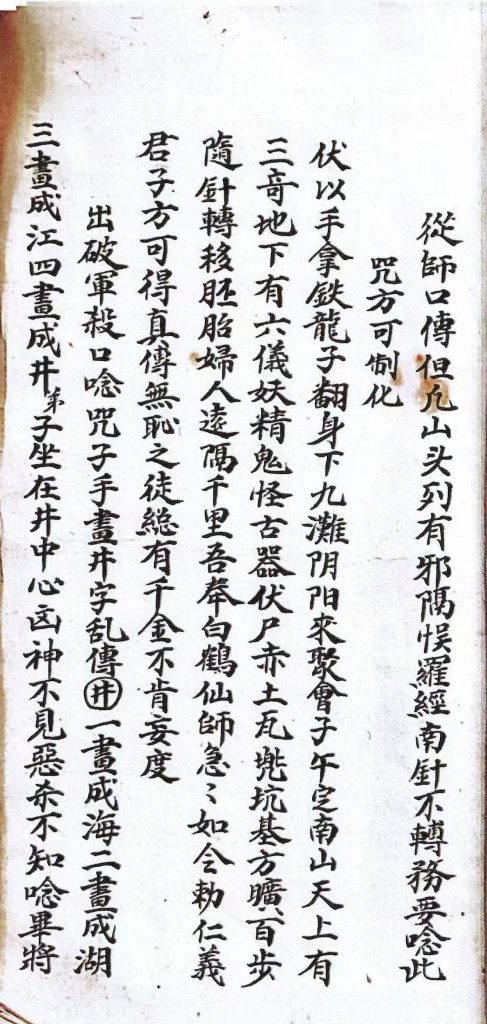 從師口傳但凡山头列有邪隅悮羅經南針不轉務要唸此
咒方可制化
伏以手拿鉄龍子翻身下九灘阴阳來聚會子午定南山天上有
三竒地下有六儀妖精鬼怪古器伏尸赤土瓦兠坑基方曠百步
隨針轉移胚胎婦人遠隔千里吾奉白鶴仙師急〻如令勅仁義
君子方可得真傳無恥之徒縂有千金不肯妄度
出破軍殺口唸咒子手畫井字乱傳井一畫成海二畫成湖
三畫成江四畫成井弟子坐在井中心凶神不見惡杀不知唸畢將